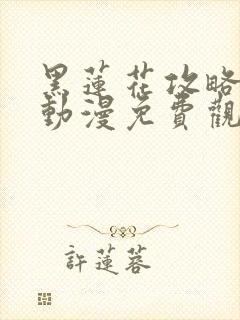 黑蓮花攻略
動漫免費觀
許蓮蓉